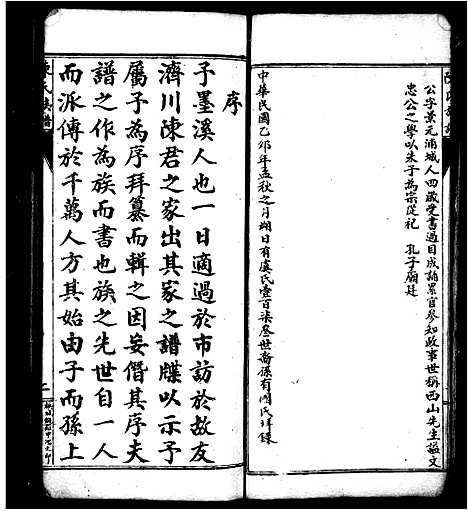 公字景元浦城人四歲受書過目成誦累官參知政事世稱西山先生諡文
忠公之學以朱子為宗從祀　孔子廟廷
中華民國乙卯年孟秋之月朔日有虞氏壹百柒叁世裔孫有國氏拜錄
序
予墨溪人也一日適過於市訪於故友
濟川陳君之家出其家之譜牒以示予
屬予為序拜纂而輯之因妄僭其序夫
譜之作為族而書也族之先世自一人
而派傳於千萬人方其始由子而孫上
陳氏族譜
二